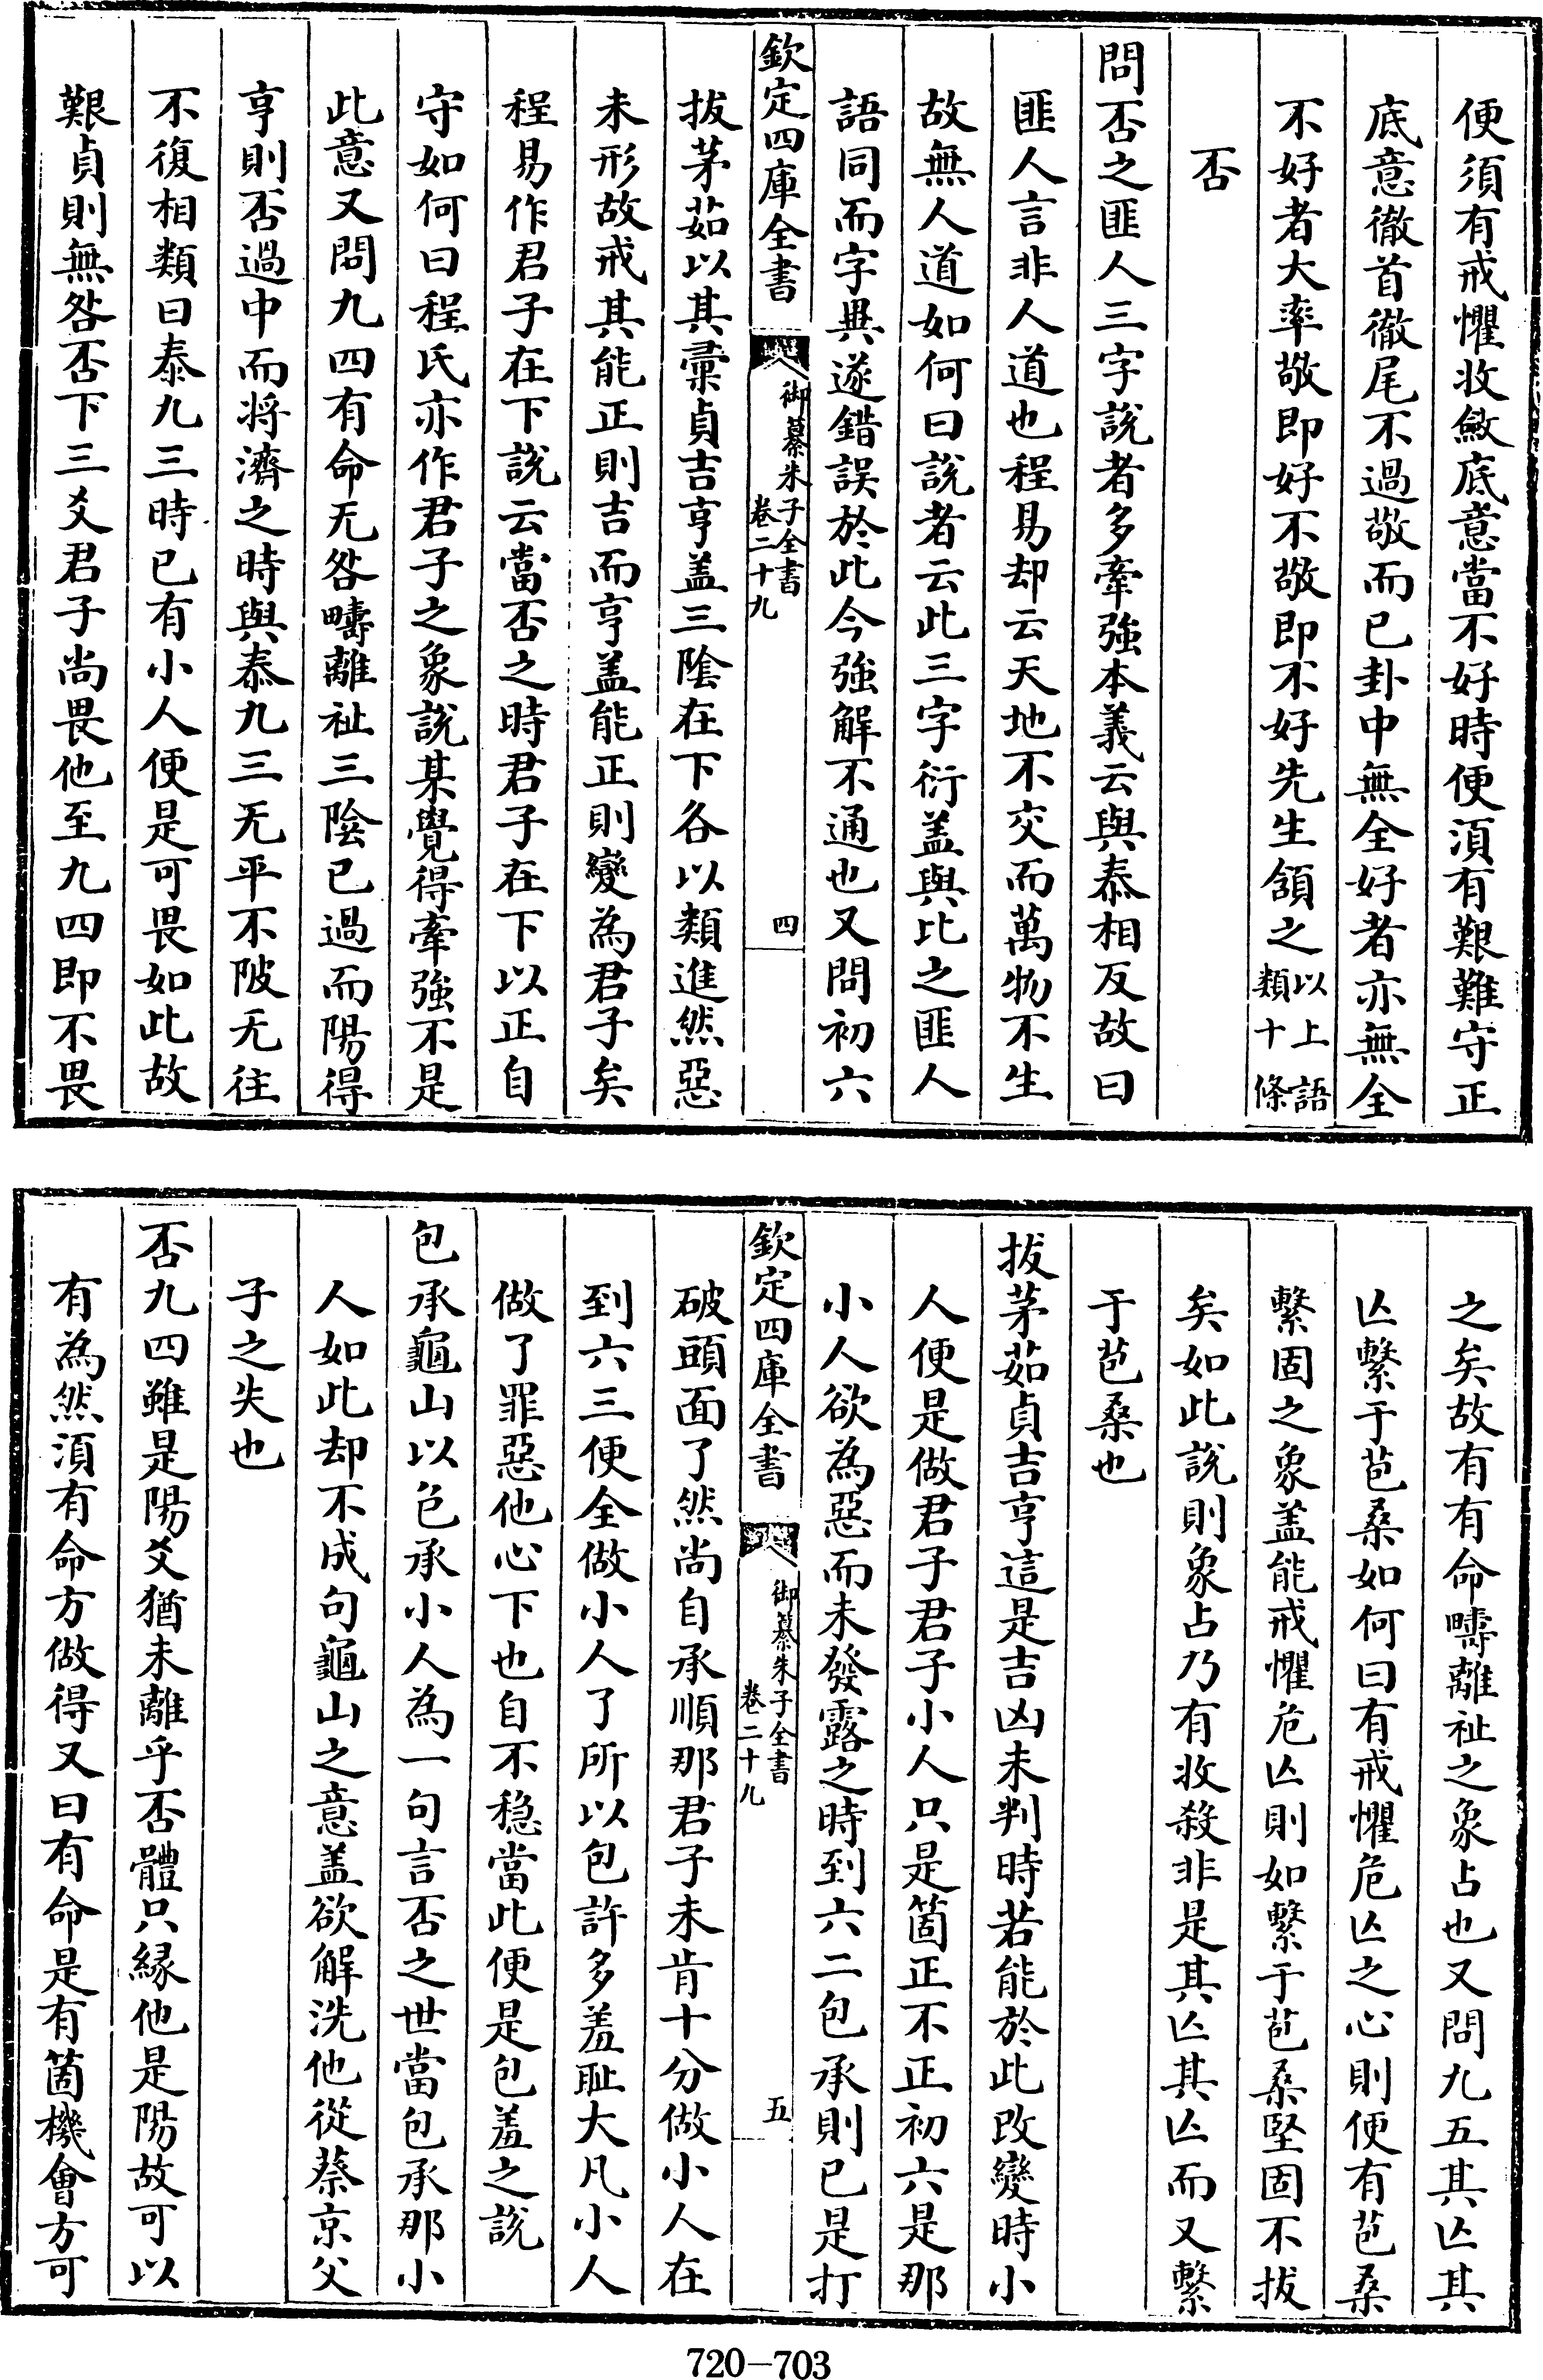 便須有戒懼收斂底意當不好時便須有艱難守正
底意徹首徹尾不過敬而已卦中無全好者亦無全
不好者大率敬即好不敬即不好先生頷之以上語
類十條
否
問否之匪人三字說者多牽強本義云與泰相反故曰
匪人言非人道也程易却云天地不交而萬物不生
故無人道如何曰說者云此三字衍盖與比之匪人
語同而字異遂錯誤於此今強解不通也又問初六
欽定四庫全書
御纂朱子全書
卷二十九
四
拔茅茹以其彚貞吉亨盖三隂在下各以類進然惡
未形故戒其能正則吉而亨盖能正則變為君子矣
程易作君子在下說云當否之時君子在下以正自
守如何曰程氏亦作君子之象說某覺得牽強不是
此意又問九四有命无咎疇離祉三隂已過而陽得
亨則否過中而将濟之時與泰九三无平不陂无往
不復相類曰泰九三時已有小人便是可畏如此故
艱貞則無咎否下三爻君子尚畏他至九四即不畏
之矣故有有命疇離祉之象占也又問九五其亾其
亾繫于苞桑如何曰有戒懼危亾之心則便有苞桑
繫固之象盖能戒懼危亾則如繫于苞桑堅固不拔
矣如此說則象占乃有收殺非是其亾其亾而又繫
于苞桑也
拔茅茹貞吉亨這是吉凶未判時若能於此改變時小
人便是做君子君子小人只是箇正不正初六是那
小人欲為惡而未發露之時到六二包承則已是打
欽定四庫全書
御纂朱子全書
卷二十九
五
破頭面了然尚自承順那君子未肯十分做小人在
到六三便全做小人了所以包許多羞耻大凡小人
做了罪惡他心下也自不稳當此便是包羞之說
包承龜山以包承小人為一句言否之世當包承那小
人如此却不成句龜山之意盖欲解洗他從蔡京父
子之失也
否九四雖是陽爻猶未離乎否體只緣他是陽故可以
有為然須有命方做得又曰有命是有箇機會方可
720—703